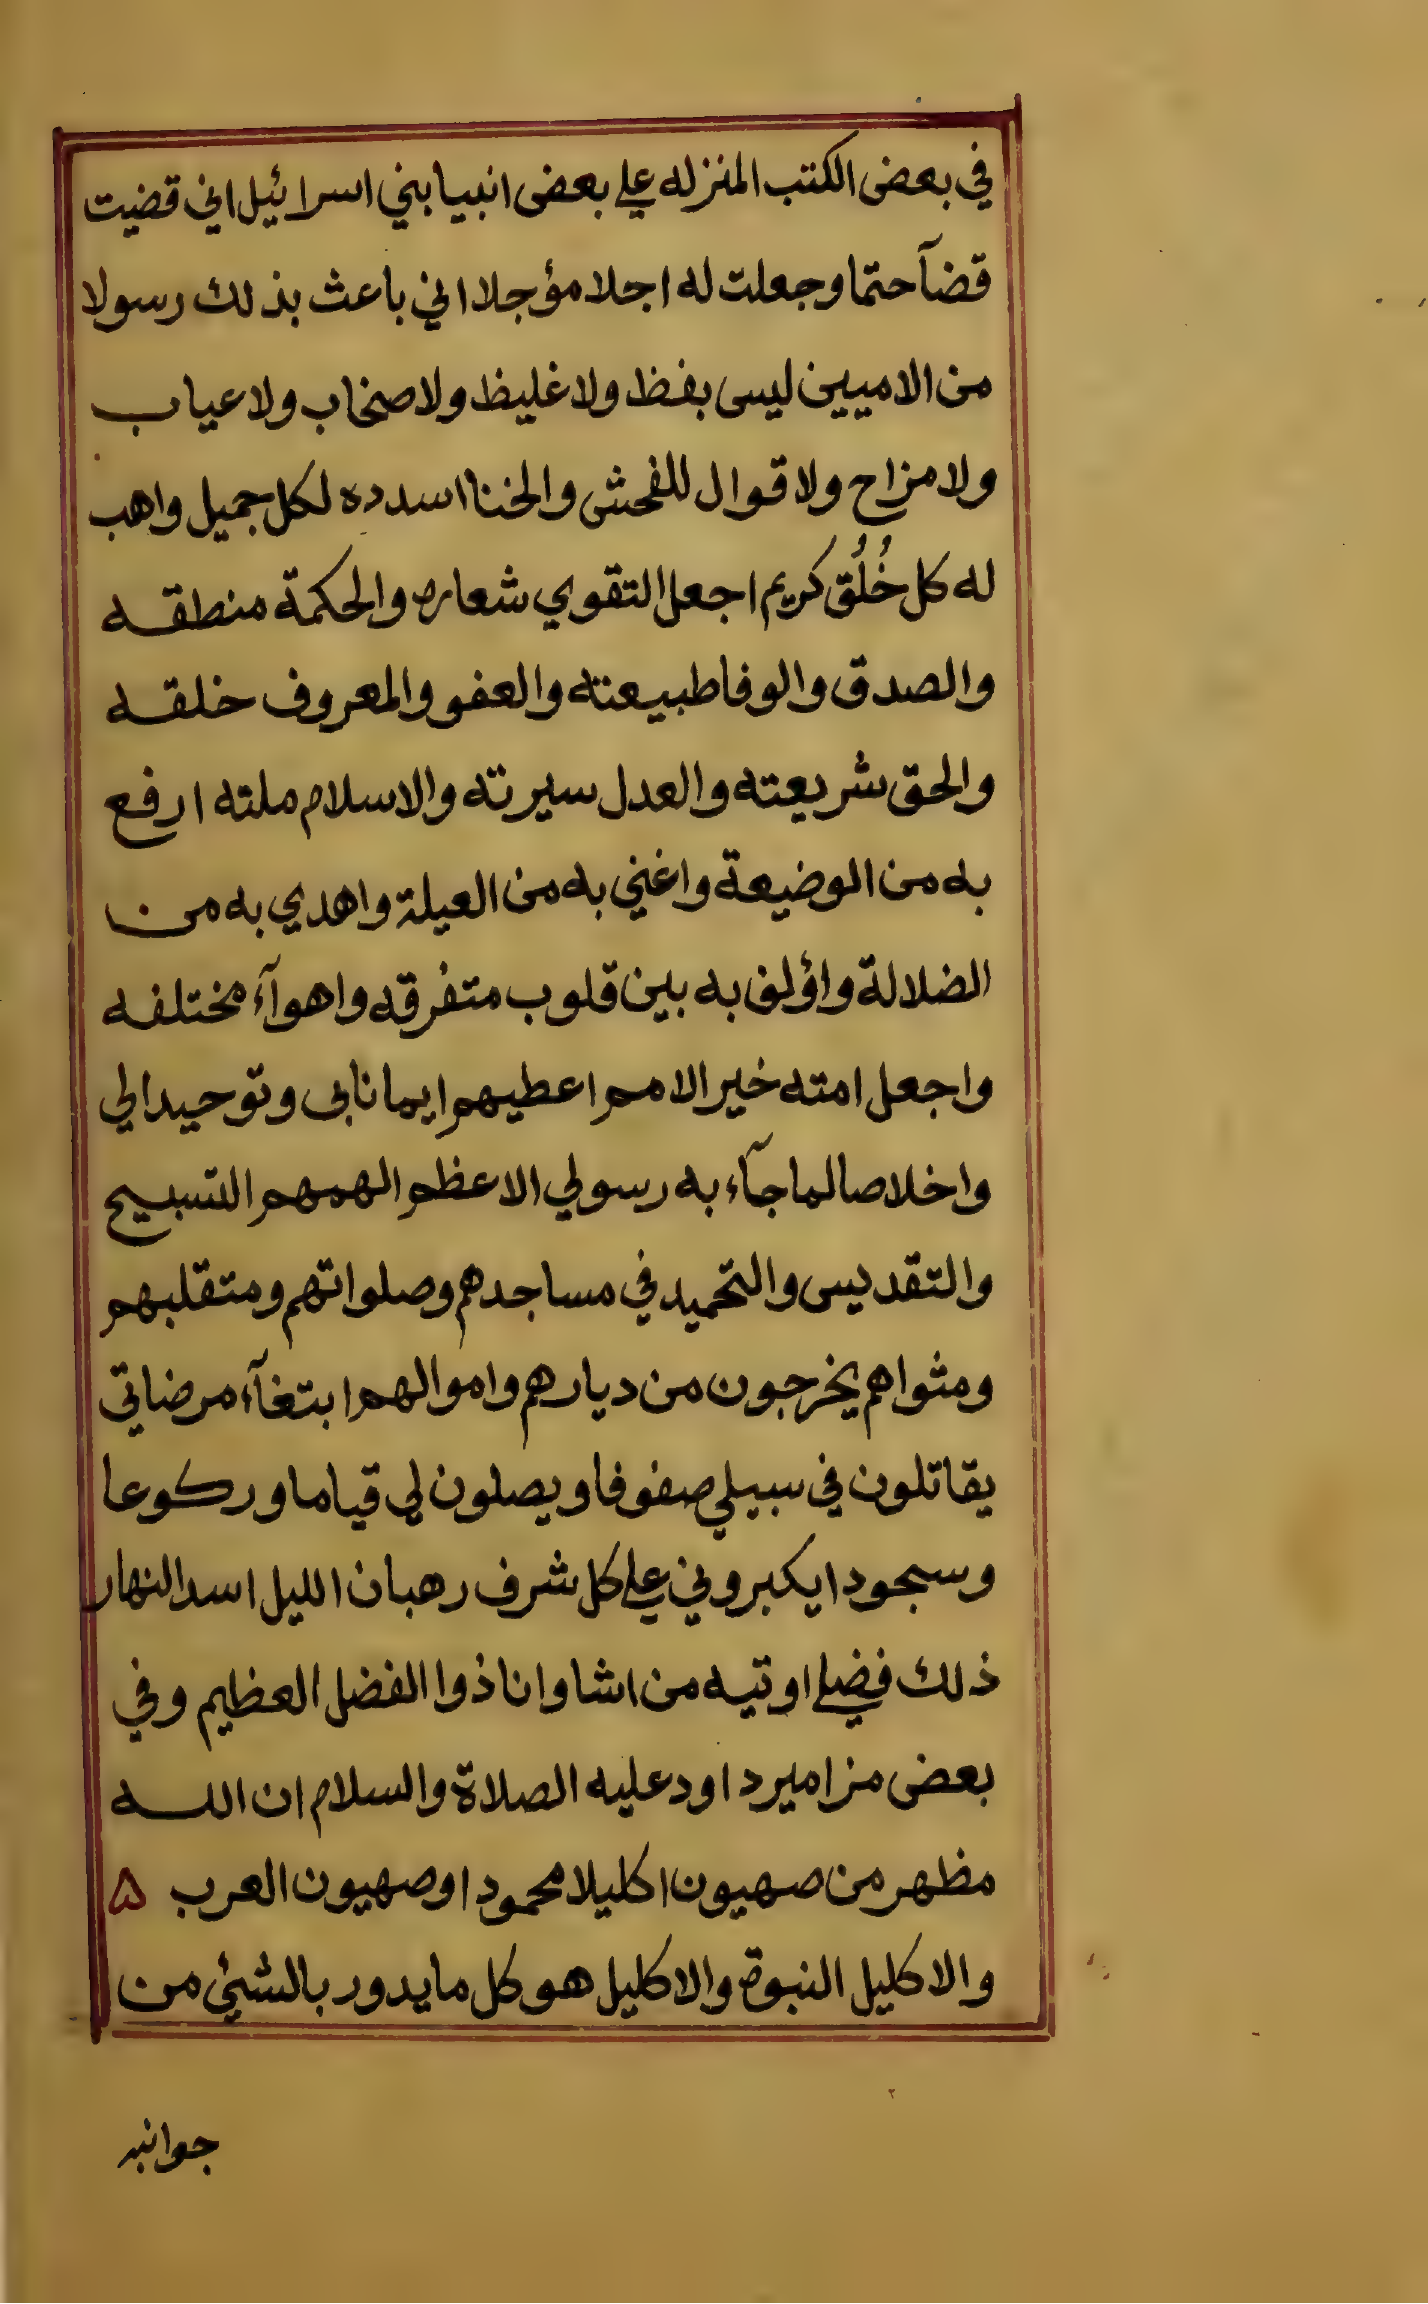 في بعض الكتب المنزله علي بعض انبيا بني اسرائيل اني قضيت
قضآ حتما وجعلت له اجلا مؤجلا اني باعث بذلك رسولا
من الاميين ليس بفظ ولا غليظ ولا صخاب ولا عياب
ولا مزاح ولا قوال للفحش والخنا اسدده لكل جميل واهب
له كل خُلُق كريم اجعل التقوي شعاره والحكمة منطقه
والصدق والوفا طبيعته والعفو والمعروف خلقه
والحق شريعته والعدل سيرته والاسلام ملته ارفع
به من الوضيعة واغني به من العيلة واهدي به من
الضلالة واؤلف به بين قلوب متفرقه واهوآء مختلفه
واجعل امته خير الامم اعطيهم ايمانا بى وتوحيدا لي
واخلاصا لما جآء به رسولي الاعظم الهمهم التسبيح
والتقديس والتحميد في مساجدهم وصلواتهم ومتقلبهم
ومثواهم يخرجون من ديارهم واموالهم ابتغآء مرضاتي
يقاتلون في سبيلي صفوفا ويصلون لي قياما وركوعا
وسجودا يكبروني علي كل شرف رهبان الليل اسد النهار
ذلك فضلي اوتيه من اشا وانا ذوا الفضل العظيم وفي
بعض مزامير داود عليه الصلاة والسلام ان الله
مظهر من صهيون اكليلا محمودا وصهيون العرب ۵
والاكليل النبوة والاكليل هو كل ما يدور بالشيئ من
جوانبه